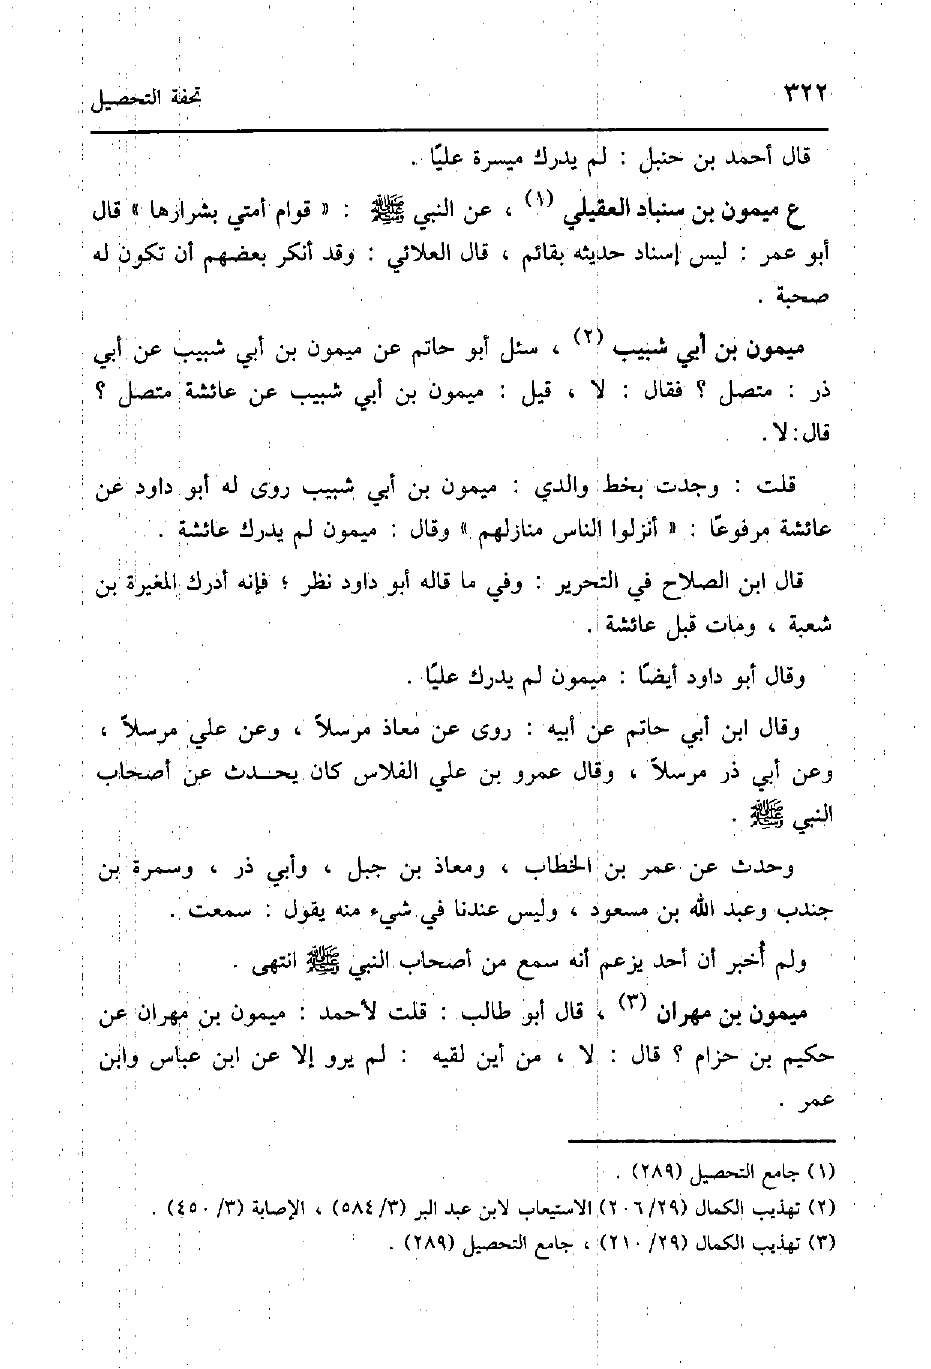 ٣٢٢ تحفة التحصيل
قال أحمد بن حنبل : لم يدرك ميسرة عليًا .
ع ميمون بن سنباد العقيلي (١) ، عن النبي ﷺ : « قوام أمتي بشرارها » قال
أبو عمر : ليس إسناد حديثه بقائم ، قال العلائي : وقد أنكر بعضهم أن تكون له
صحبة .
ميمون بن أبي شبيب (٢) ، سئل أبو حاتم عن ميمون بن أبي شبيب عن أبي
ذر : متصل ؟ فقال : لا ، قيل : ميمون بن أبي شبيب عن عائشة متصل ؟
قال : لا .
قلت : وجدت بخط والدي : ميمون بن أبي شبيب روى له أبو داود عن
عائشة مرفوعًا : « أنزلوا الناس منازلهم » وقال : ميمون لم يدرك عائشة .
قال ابن الصلاح في التحرير : وفي ما قاله أبو داود نظر ؛ فإنه أدرك المغيرة بن
شعبة ، ومات قبل عائشة .
وقال أبو داود أيضًا : ميمون لم يدرك عليًا .
وقال ابن أبي حاتم عن أبيه : روى عن معاذ مرسلاً ، وعن علي مرسلاً ،
وعن أبي ذر مرسلاً ، وقال عمرو بن علي الفلاس كان يحدث عن أصحاب
النبي ﷺ .
وحدث عن عمر بن الخطاب ، ومعاذ بن جبل ، وأبي ذر ، وسمرة بن
جندب وعبد الله بن مسعود ، وليس عندنا في شيء منه يقول : سمعت .
ولم أُخبر أن أحد يزعم أنه سمع من أصحاب النبي ﷺ انتهى .
ميمون بن مهران (٣) ، قال أبو طالب : قلت لأحمد : ميمون بن مهران عن
حكيم بن حزام ؟ قال : لا ، من أين لقيه : لم يرو إلا عن ابن عباس وابن
عمر .
(١) جامع التحصيل (٢٨٩) .
(٢) تهذيب الكمال (٢٠٦/٢٩) الاستيعاب لابن عبد البر (٥٨٤/٣) ، الإصابة (٤٥٠/٣) .
(٣) تهذيب الكمال (٢١٠/٢٩) ، جامع التحصيل (٢٨٩) .